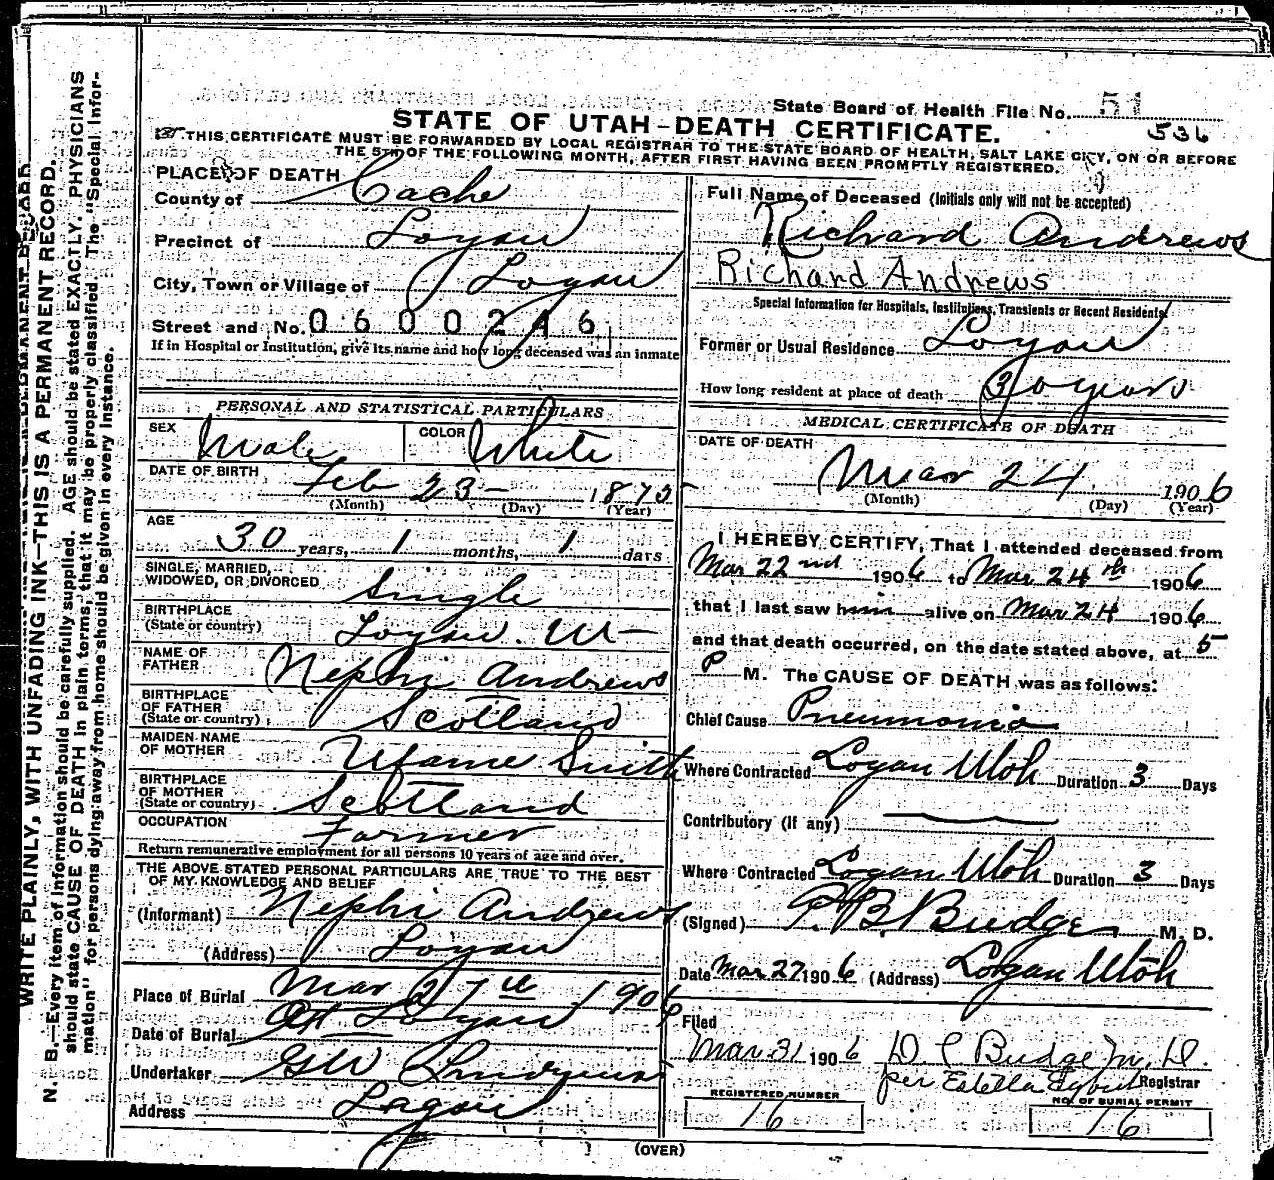 State Board of Health File No. 51
536
STATE OF UTAH-DEATH CERTIFICATE.
THIS CERTIFICATE MUST BE FORWARDED BY LOCAL REGISTRAR TO THE STATE BOARD OF HEALTH, SALT LAKE CITY, ON OR BEFORE
THE 5TH OF THE FOLLOWING MONTH, AFTER FIRST HAVING BEEN PROMPTLY REGISTERED.
WRITE PLAINLY, WITH UNFADING INK—THIS IS A PERMANENT RECORD.
N. B.—Every item of information should be carefully supplied. AGE should be stated EXACTLY. PHYSICIANS
should state CAUSE OF DEATH in plain terms, that it may be properly classified. The "Special Infor-
mation" for persons dying away from home should be given in every instance.
PLACE OF DEATH
County of Cache
Precinct of Logan
City, Town or Village of Logan
Street and No. 0600246
If in Hospital or Institution, give its name and how long deceased was an inmate
PERSONAL AND STATISTICAL PARTICULARS
SEX Male COLOR White
DATE OF BIRTH Feb 23- 1875
(Month) (Day) (Year)
AGE 30 years, 1 months, 1 days
SINGLE, MARRIED,
WIDOWED, OR DIVORCED Single
BIRTHPLACE
(State or country) Logan. Ut
NAME OF
FATHER Nephi Andrews
BIRTHPLACE
OF FATHER
(State or country) Scotland
MAIDEN NAME
OF MOTHER Smith
BIRTHPLACE
OF MOTHER
(State or country) Scotland
OCCUPATION Farmer
Return remunerative employment for all persons 10 years of age and over.
THE ABOVE STATED PERSONAL PARTICULARS ARE TRUE TO THE BEST
OF MY KNOWLEDGE AND BELIEF
(Informant) Nephi Andrews
(Address) Logan
Place of Burial Mar 27th 1906
Date of Burial At Logan
Undertaker GW
Address Logan
Full Name of Deceased (Initials only will not be accepted)
Richard Andrews
Richard Andrews
Special Information for Hospitals, Institutions, Transients or Recent Residents
Former or Usual Residence Logan
How long resident at place of death 30 years
MEDICAL CERTIFICATE OF DEATH
DATE OF DEATH
Mar 24 1906
(Month) (Day) (Year)
I HEREBY CERTIFY, That I attended deceased from
Mar 22nd 1906 to Mar 24th 1906
that I last saw him alive on Mar 24 1906
and that death occurred, on the date stated above, at 5
P M. The CAUSE OF DEATH was as follows:
Chief Cause Pneumonia
Where Contracted Logan Utah Duration 3 Days
Contributory (if any)
Where Contracted Logan Utah Duration 3 Days
(Signed) Budge M. D.
Date Mar 27 1906 (Address) Logan Utah
Filed
Mar 31 1906 D C Budge M. D.
per Estella Registrar
REGISTERED NUMBER
16
NO. OF BURIAL PERMIT
16
(OVER)